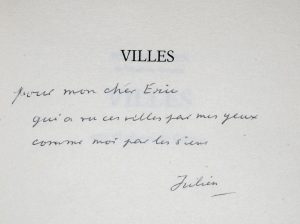 VILLES
pour mon cher Eric
qui a vu ces villes par mes yeux
comme moi par les siens
Julien